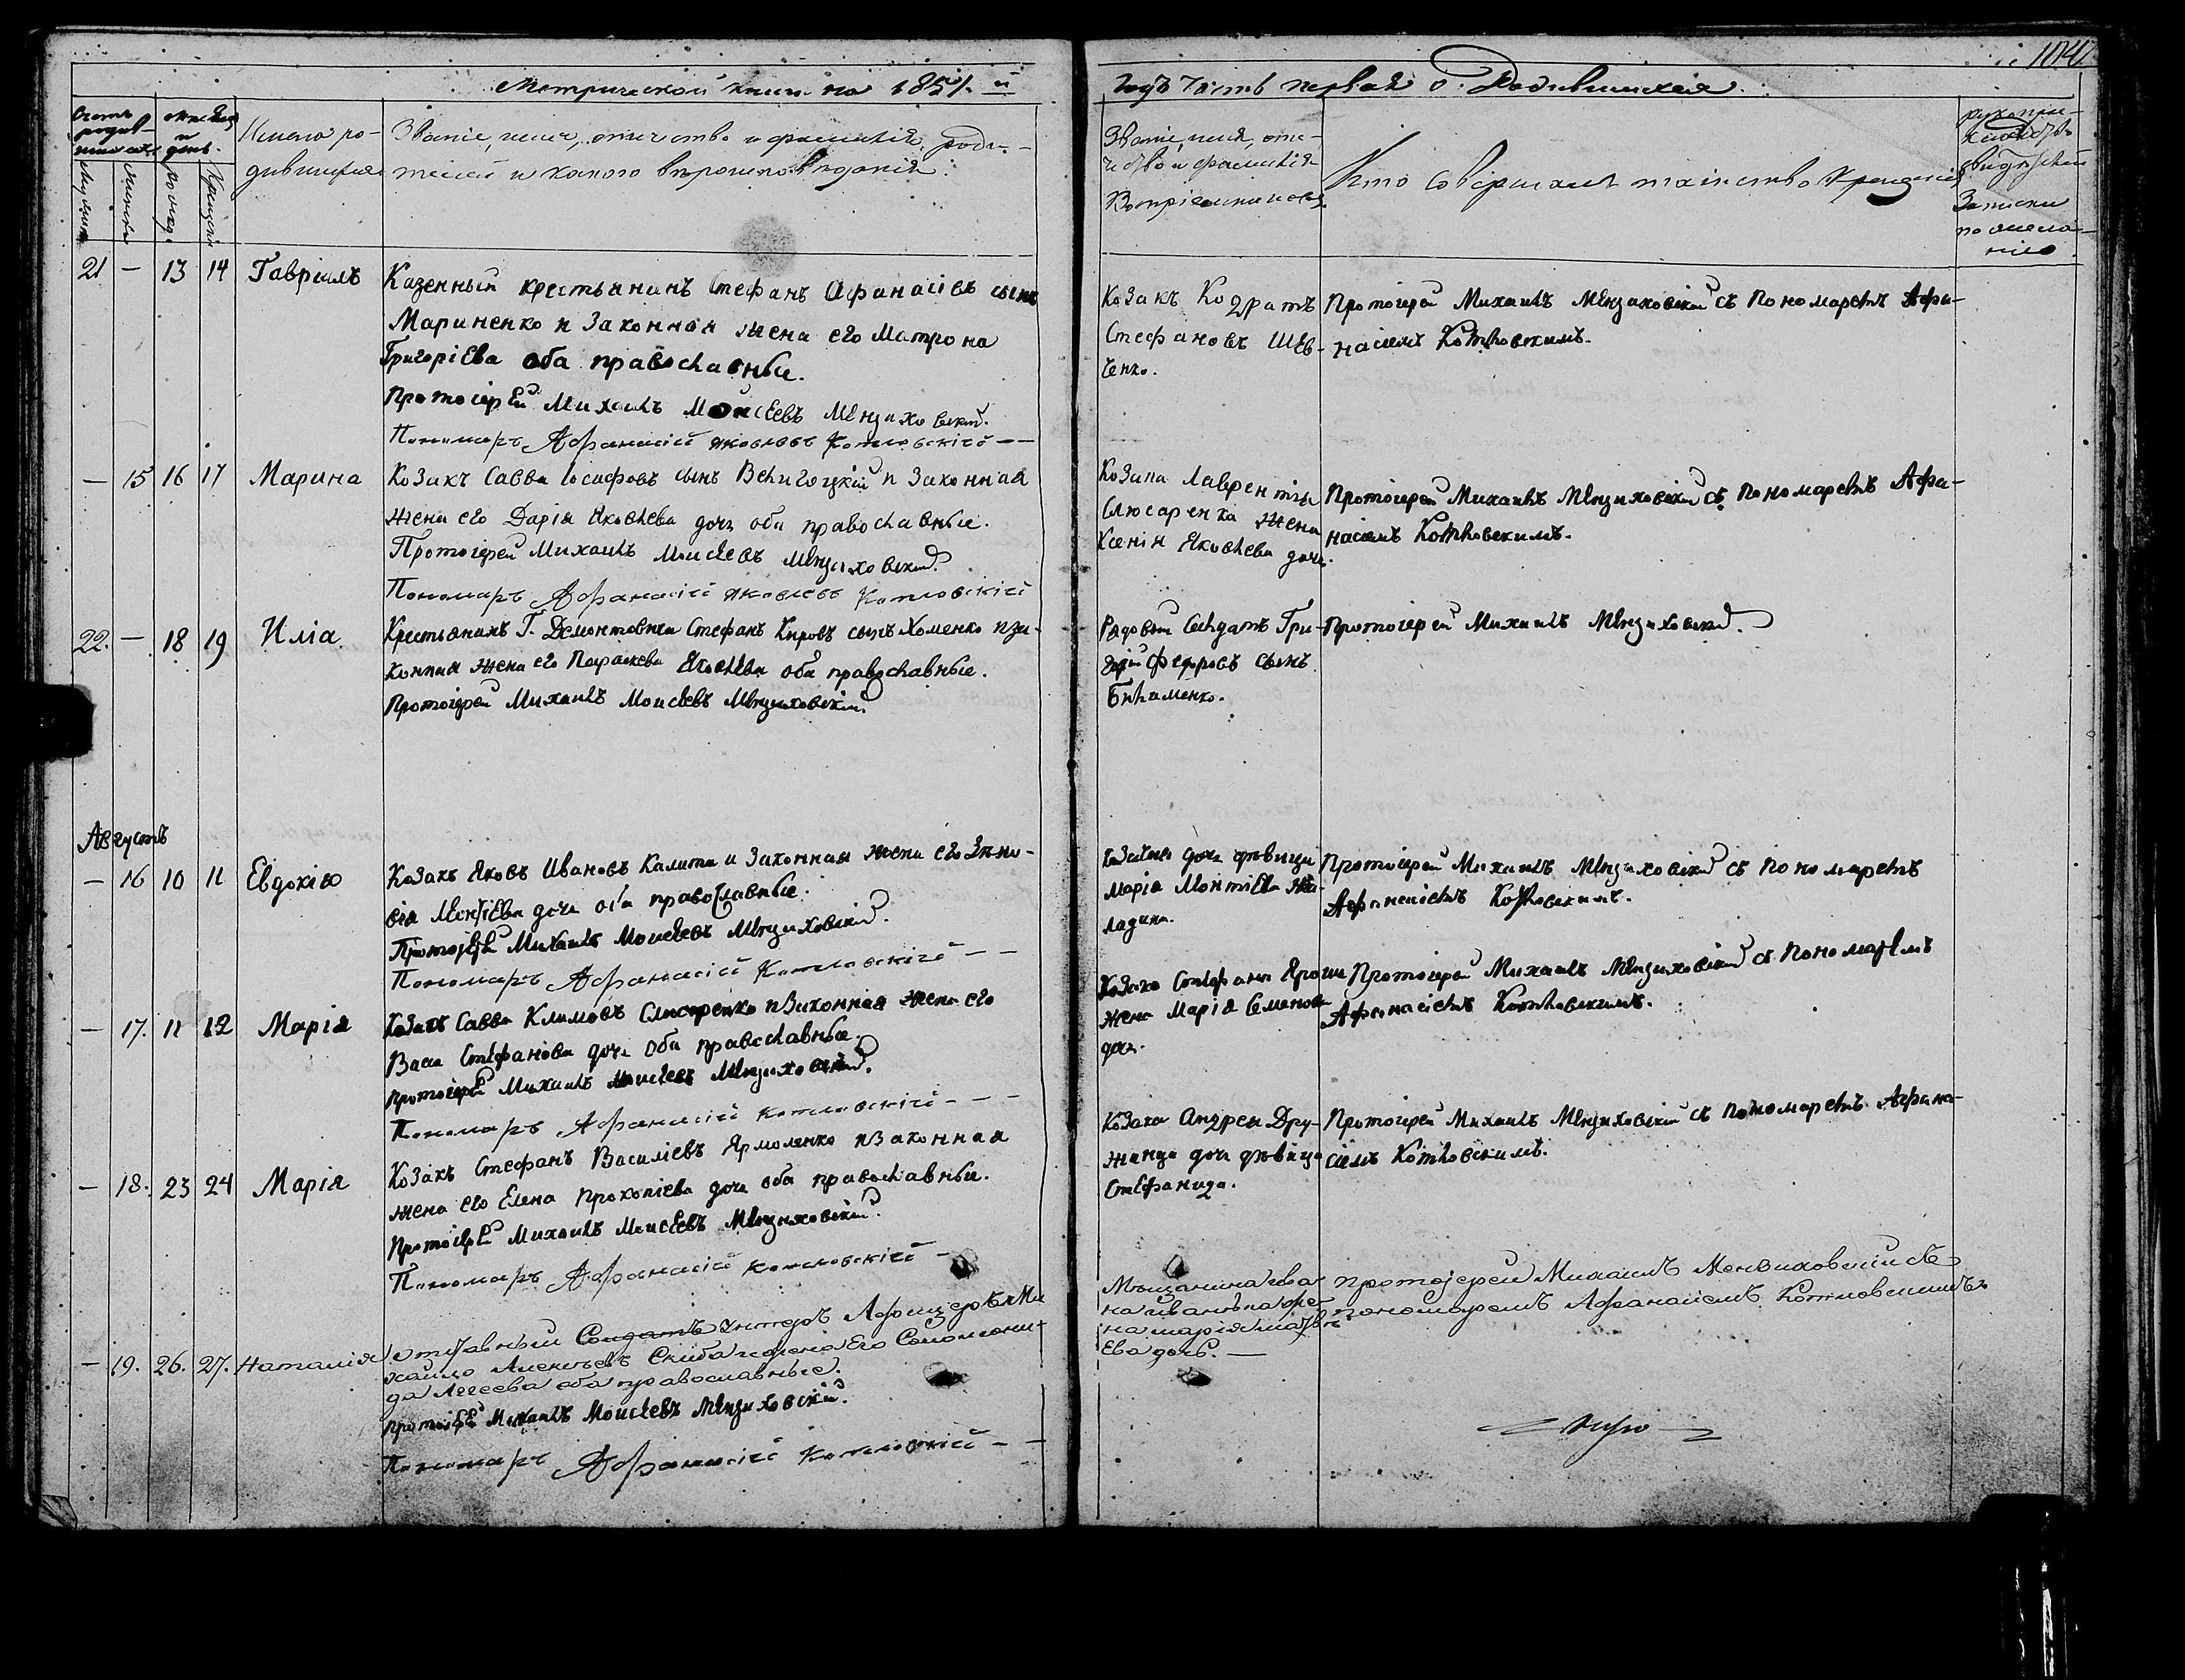 1040
Метрической книги на 1851. й
годъ часть первая о Родившихся.
Счетъ родив-шихся
Мужеска
Женска
Мѣсяцъ и день.
рожд.
Крещенія
Имена ро-
дившихся
Званіе, имя, отчество и фамилія роди-
телей и какого вѣроисповѣданія.
Званіе, имя, оте-
чество и фамилія
Воспріемниковъ.
Кто Совершалъ таинство Крещенія
рукопри-
кладство
свидѣтелей
Записки
по жела-
нію
21 — 13 14 Гавріилъ
Казенный крестьянинъ Стефанъ Афанасіевъ сынъ
Мариненко и Законная жена его Матрона
Григоріева оба православные.
Протоіерей Михаилъ Моисеевъ Менциховскій.
Пономарь Афанасій Яковлевъ Котловскій — —
Козакъ Кодратъ
Стефановъ Шев-
ченко.
Протоіерей Михаилъ Менциховскій съ Пономаремъ Афа-
насіемъ Котловскимъ.
— 15 16 17 Марина
Козакъ Савва Іосифовъ сынъ Величоцкій и Законная
жена его Дарія Яковлева дочь оба православные.
Протоіерей Михаилъ Моисеевъ Менциховскій.
Пономарь Афанасій Яковлевъ Котловскій
Козака Лаврентія
Слюсаренка жена
Ксенія Яковлева дочь.
Протоіерей Михаилъ Менциховскій съ Пономаремъ Афа-
насіемъ Котловскимъ.
22. — 18 19 Иліа
Крестьянинъ Г. Демонтовича Стефанъ Кировъ сынъ Хоменко и за-
конная жена его Параскева Яковлева оба православные.
Протоіерей Михаилъ Моисеевъ Менциховскій.
Рядовый Солдатъ Гри-
горій Федоровъ сынъ
Билименко.
Протоіерей Михаилъ Менциховскій.
Августъ
— 16 10 11 Евдокію
Козакъ Яковъ Ивановъ Калита и Законная жена его Зино-
вія Мокіева дочь оба православные.
Протоіерей Михаилъ Моисеевъ Менциховскій.
Пономарь Афанасій Котловскій — —
дочь дѣвица
Марія
Протоіерей Михаилъ Менциховскій съ Пономаремъ
Афанасіемъ Котловскимъ.
— 17. 11 12 Марія
Козакъ Савва Климовъ Слюсаренко и Законная жена его
Васа Стефанова дочь оба православные.
Протоіерей Михаилъ Моисеевъ Менциховскій.
Пономарь Афанасій Котловскій — — —
Козака Стефана Яроша
жена Марія Семенова
дочь.
Протоіерей Михаилъ Менциховскій съ Пономаремъ
Афанасіемъ Котловскимъ.
— 18. 23 24 Марія
Козакъ Стефанъ Василіевъ Ярмоленко и Законная
жена его Елена Прокопіева дочь оба православные.
Протоіерей Михаилъ Моисеевъ Менциховскій.
Пономарь Афанасій Котловскій —
Козака Андрея Дру-
жинца дочь дѣвица
Стефанида.
Протоіерей Михаилъ Менциховскій съ Пономаремъ Афана-
сіемъ Котловскимъ.
— 19. 26. 27. Наталія
отставный Солдатъ унтеръ Афицеръ Ми
хайло Алексѣевъ Скиба и жена Его Соломони-
да оба православные.
Протоіерей Михаилъ Моисеевъ Менциховскій.
Пономарь Афанасій Котловскій — —
Мѣщанина
Марія
Ева дочь. —
протоіерей Михаилъ Мендиховскій съ
пономаремъ Афанасіемъ Котловскимъ